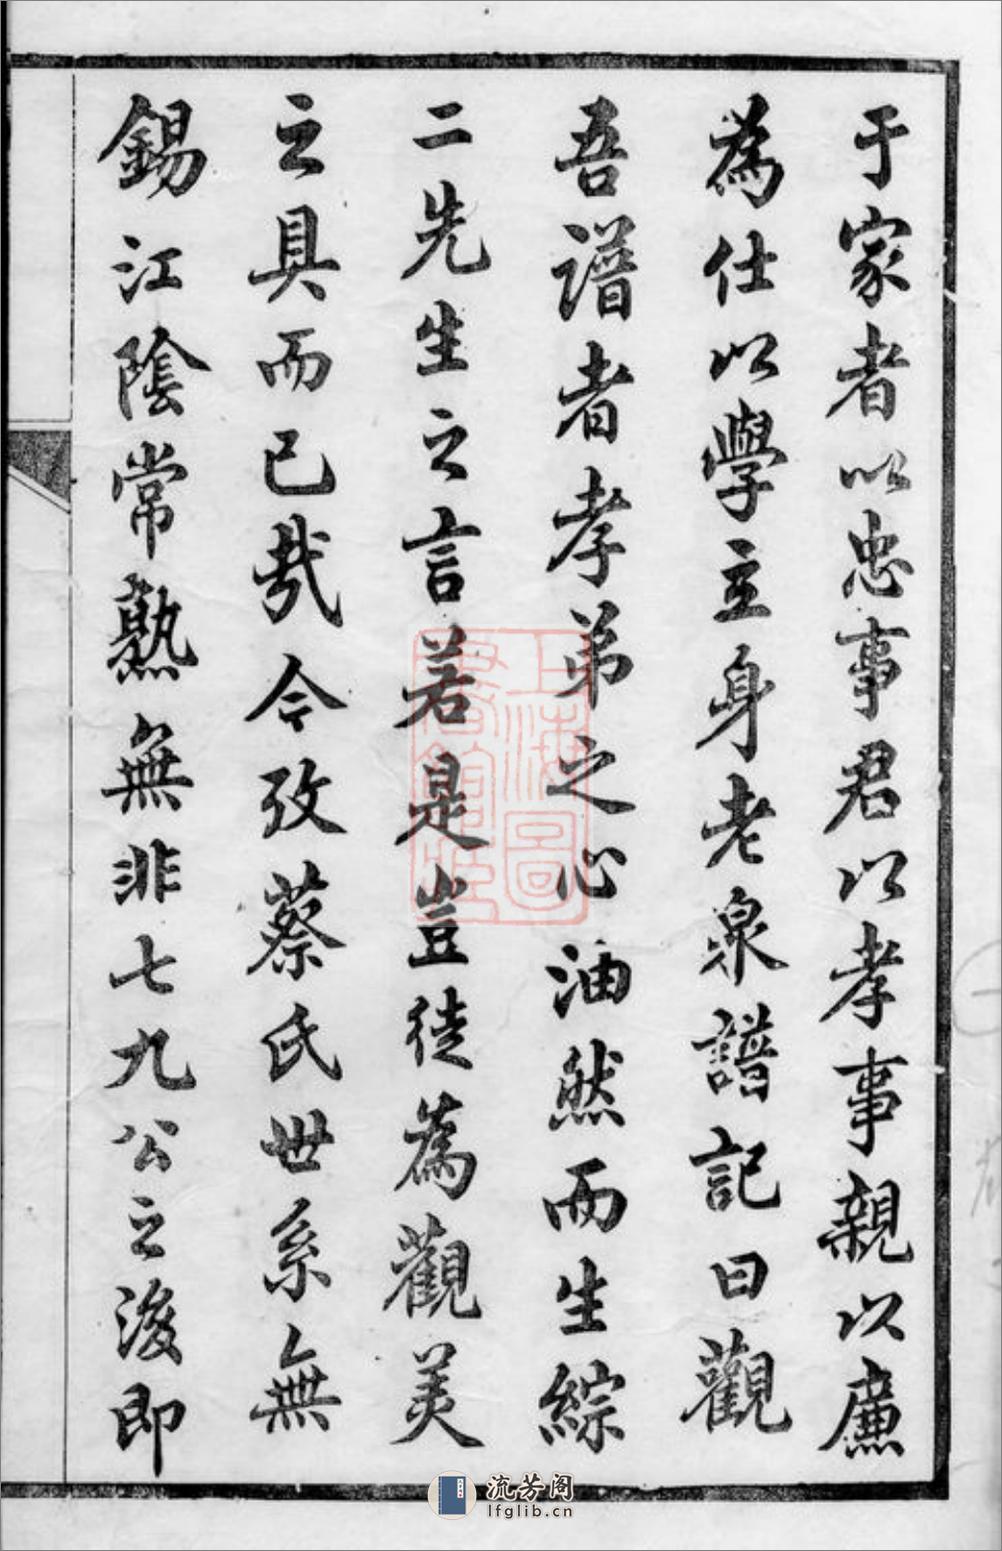 于家者以忠事君以孝事親以廉
為仕以學立身老泉譜記曰觀
吾譜者孝弟之心油然而生綜
二先生之言若是豈徒為觀美
之具而已哉今攷蔡氏世系無
錫江陰常熟無非七九公之後即
上海圖
書館藏
流芳阁
lfglib.cn